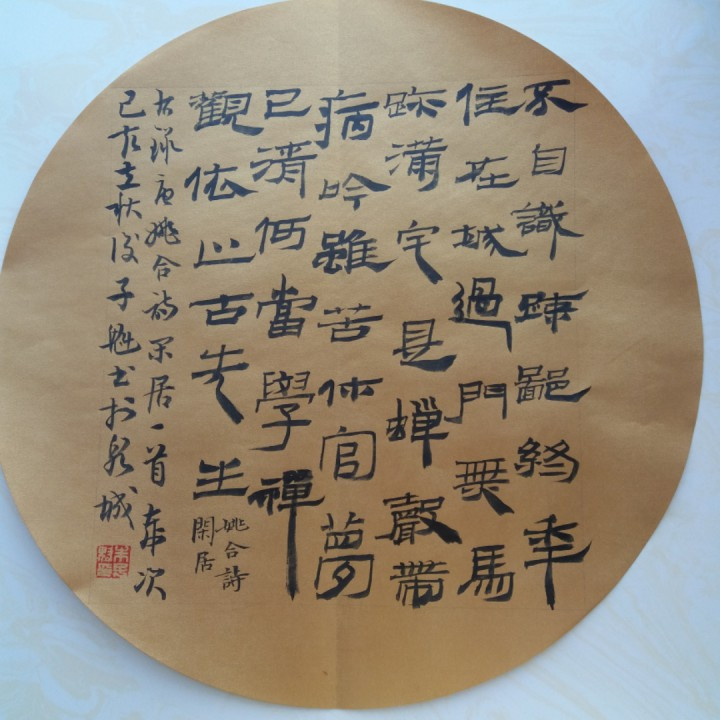 不自識踈鄙終年
住在城過門無馬
跡滿宅是蟬聲帶
病吟雖苦休官夢
已清何當學禪
觀依止古先生
姚合詩
閑居
右録唐姚合诗闲居一首歲次
己亥立秋後子魁书於泉城